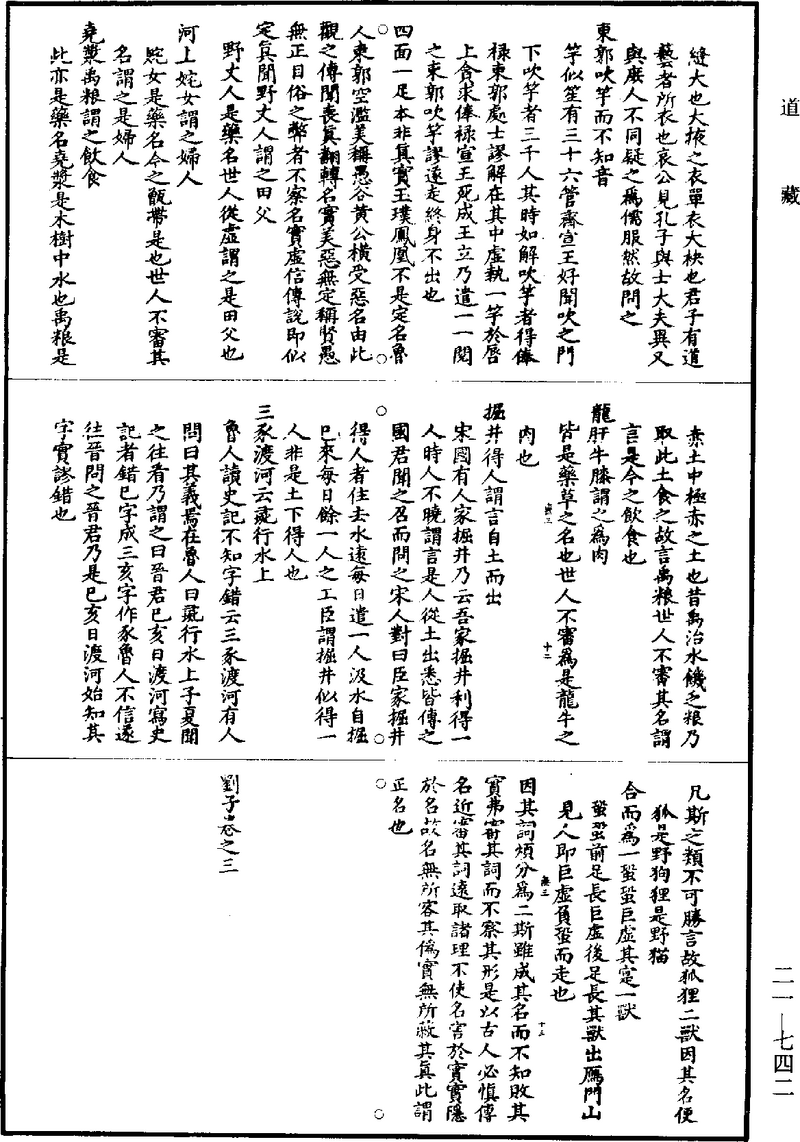 道藏
縫大也大掖之衣單衣大袂也君子有道
藝者所衣也哀公見孔子與士大夫異又
與庶人不同疑之爲儒服然故問之
東郭吹竽而不知音
竽似笙有三十六管齋宣王好聞吹之門
下吹竽者三千人其時如解吹竽者得俸
祿東郭處士謬解在其中虛執一竽於唇
上貪求俸祿宣王死成王立乃遣一一閱
之東郭吹竽謬遂走終身不出也
四面一足本非真實玉璞鳳凰不是定名魯
人東郭空濫美稱愚谷黄公橫受惡名由此
觀之傳聞喪真翻轉名實美惡無定稱賢愚
無正目俗之弊者不察名實虛信傳說即似
定真聞野丈人謂之田父
野丈人是藥名世人從虛謂之是田父也
河上姹女謂之婦人
姹女是藥名今之甑帶是也世人不審其
名謂之是婦人
堯漿禹粮謂之飲食
此亦是藥名堯漿是木樹中水也禹粮是
赤土中極赤之土也昔禹治水饑乏粮乃
取此土食之故言禹粮世人不審其名謂
言是今之飲食也
龍肝牛膝謂之爲肉
皆是藥草之名也世人不審爲是龍牛之
肉也
無三
十二
掘井得人謂言自土而出
宋國有人家掘井乃云吾家掘井利得一
人時人不曉謂言是人從土出悉皆傳之
國君聞之召而問之宋人對曰臣家掘井
得人者住去水遠每日遣一人汲水自掘
已來每日餘一人之工臣謂掘井似得一
人非是土下得人也
三豕渡河云彘行水上
魯人讀史記不知字錯云三豕渡河有人
問曰其義焉在魯人曰彘行水上子夏聞
之往看乃謂之曰晉君己亥日渡河寫史
記者錯己字成三亥字作豕魯人不信遂
往晉問之晉君乃是己亥日渡河始知其
字實謬錯也
凡斯之類不可勝言故狐狸二獸因其名便
狐是野狗狸是野猫
合而爲一蛩蛩巨虛其寔一獸
蛩蛩前足長巨虛後足長其獸出鴈門山
見人即巨虛負蛩而走也
因其詞煩分爲二斯雖成其名而不知敗其
無三
十三
實弗審其詞而不察其形是以古人必慎傳
名近審其詞遠取諸理不使名害於實實隱
於名故名無所容其僞實無所蔽其真此謂
正名也
劉子卷之三
二一—七四二